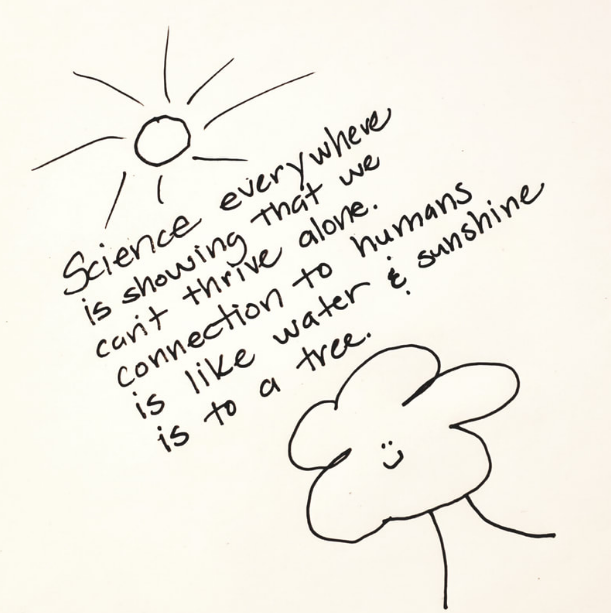 Science everywhere
is showing that we
can't thrive alone.
connection to humans
is like water & sunshine
is to a tree.